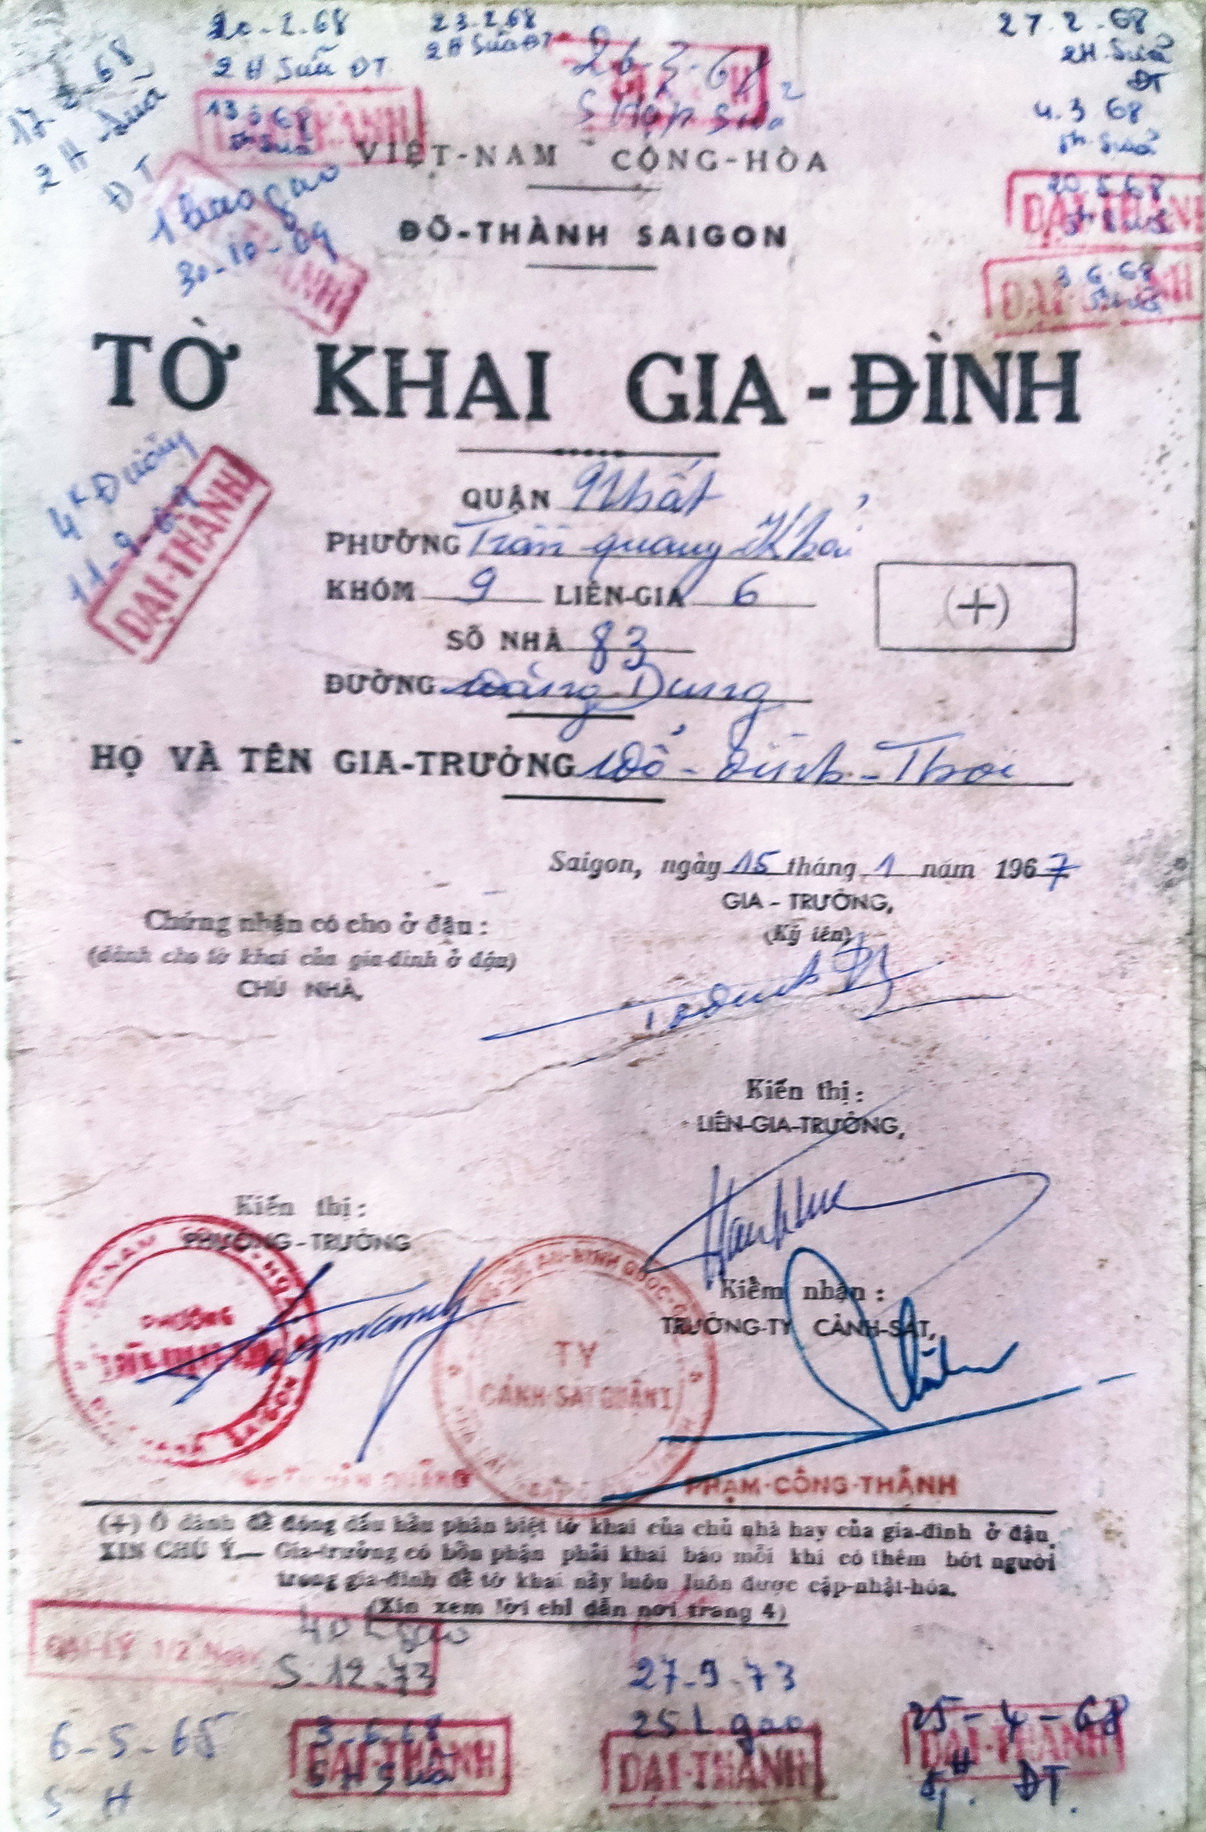 20-2.68
2 H Sữa ĐT
23.2.68
2 H Sữa ĐT
26-3-68
5 Hộp Sữa
27.2.68
2H. Sữa
ĐT
17-2-68
2 H Sữa
ĐT
13 3 68
5h Sữa
ĐẠI-THÀNH
4.3 68
5h Sữa
VIỆT-NAM CỘNG-HÒA
1 bao gạo
30-10-69
20.5.68
ĐẠI-THÀNH
ĐÔ-THÀNH SAIGON
3.6.68
ĐẠI-THÀNH
TỜ KHAI GIA-ĐÌNH
4k Đường
11-9-67
ĐẠI-THÀNH
QUẬN Nhất
PHƯỜNG Trần quang Khải
KHÓM 9 LIÊN-GIA 6
(+)
SỐ NHÀ 83
ĐƯỜNG Đặng Dung
HỌ VÀ TÊN GIA-TRƯỞNG Đỗ-Đình-Thoi
Saigon, ngày 15 tháng 1 năm 1967
GIA-TRƯỞNG,
(Ký tên)
Chứng nhận có cho ở đậu :
(dành cho tờ khai của gia-đình ở đậu)
CHỦ NHÀ,
Kiến thị :
LIÊN-GIA-TRƯỞNG,
Kiến thị :
PHƯỜNG-TRƯỞNG
PHƯỜNG
SAIGON
TY
CẢNH-SÁT QUẬN I
Kiểm nhận :
TRƯỞNG-TY CẢNH-SÁT,
PHẠM-CÔNG-THÀNH
(+) Ô dành để đóng dấu hầu phân biệt tờ khai của chủ nhà hay của gia-đình ở đậu.
XIN CHÚ Ý.— Gia-trưởng có bổn phận phải khai báo mỗi khi có thêm bớt người
trong gia-đình để tờ khai này luôn luôn được cập-nhật-hóa.
(Xin xem lời chỉ dẫn nơi trang 4)
40 L gạo
5-12-73
ĐẠI-LÝ 1/2
27-9-73
25 L gạo
ĐẠI-THÀNH
6-5-68
5 H
3-6-68
5 H Sữa
ĐẠI-THÀNH
25-4-68
ĐẠI-THÀNH
ĐT.